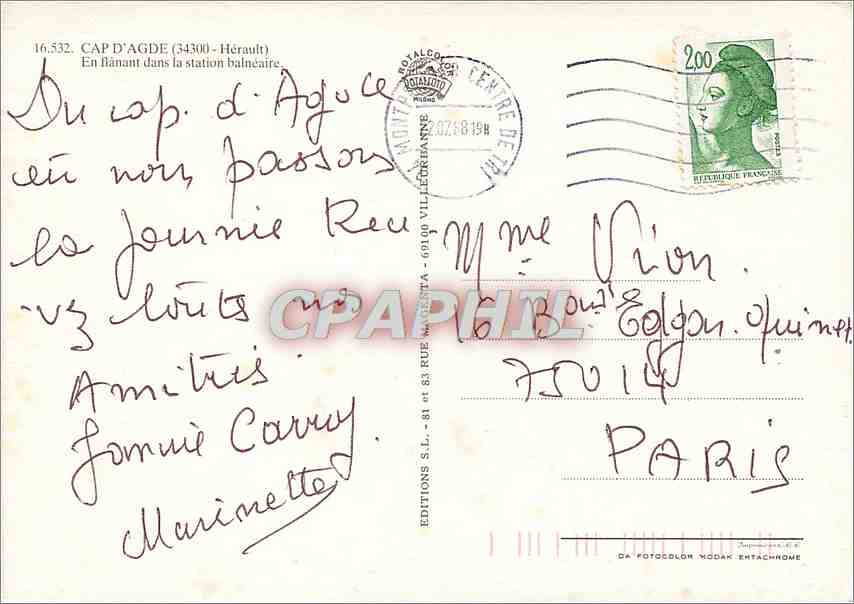 16.532. CAP D'AGDE (34300 - Hérault)
En flânant dans la station balnéaire.
Du cap. d'Agde
où nous passons
la journée Rece
vez toutes nos
Amitiés.
Jannie Carroy.
Marinette
ROTALCOLOR
ROTALFOTO
MILANO
CENTRE DE TRI
2,00
POSTES
REPUBLIQUE FRANÇAISE
EDITIONS S.L. - 81 et 83 RUE MAGENTA - 69100 VILLEURBANNE
CPAPHIL
Mme Vion.
16 Bould Edgar. Quinet
75014
PARIS
Imprimerie C.E
CA FOTOCOLOR KODAK EKTACHROME